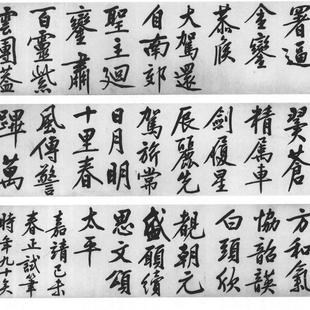 署逼
金鑾
恭候
大駕還
自南郊
聖主廻
鑾肅
百靈紫
雲團蓋
翼蒼
精属車
劍履星
辰麗先
駕旂常
日月明
十里春
風傳警
蹕萬
方和氣
協韶韺
白頭欣
覩朝元
盛願續
思文頌
太平
嘉靖己未
春正試筆
時年九十矣